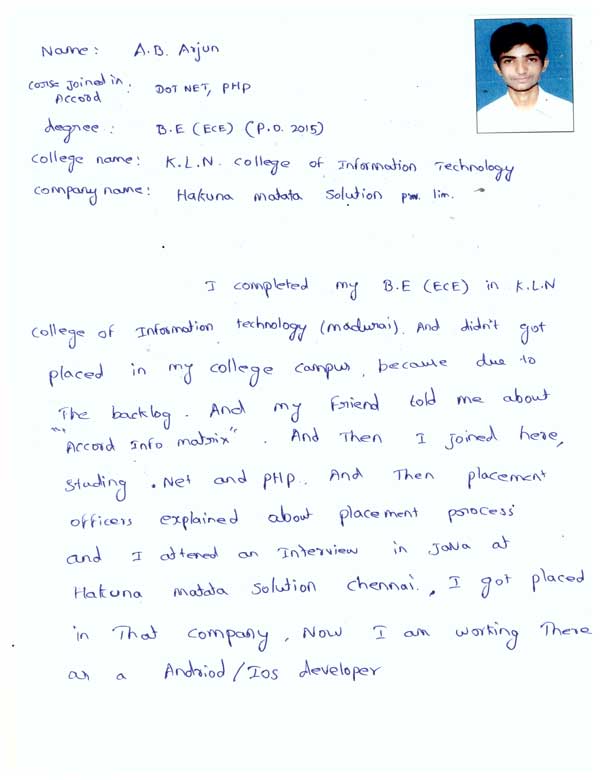 Name: A.B. Arjun
Corse Joined in Accord: DOT NET, PHP
degree: B.E (ECE) (P.O. 2015)
College name: K.L.N. College of Information Technology
Company name: Hakuna matata Solution pvt. lim.
I completed my B.E (ECE) in K.L.N
College of Information technology (madurai). And didn't got
placed in my college campus, because due to
The backlog. And my Friend told me about
"Accord Info matrix". And Then I joined here,
Studing .Net and PHP. And Then placement
officers explained about placement porocess
and I attened an Interview in Java at
Hakuna matata Solution Chennai., I got placed
in That company, Now I am working There
as a Andriod/Ios developer